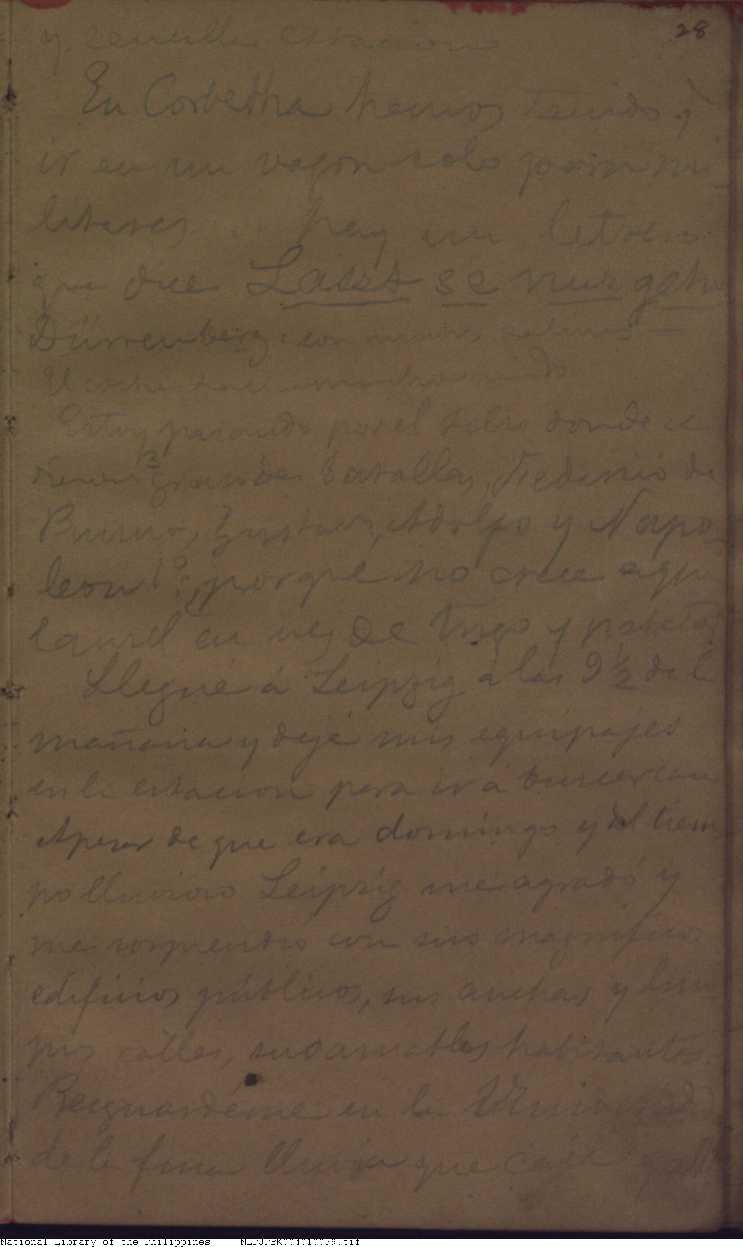 28
y sencilla estacion
En Corbetha hemos tenido q̃
ir en un vagon solo para mi-
litares hay un letrero
que dice Lasst se nur gehn
Dürrenberg, con muchas salinas —
El coche hace mucho ruido
Estoy pasando por el sitio donde se
dieron 3 grandes batallas, Federico de
Prusia, Gustavo Adolfo y Napo-
leon 1º; porque no crece aqui
laurel en vez de trigo y patatas?
Llegué á Leipzig á las 9 ½ de la
mañana y dejé mis equipajes
en la estacion para ir á buscar
Apesar de que era domingo y del tiem-
po lluvioso Leipzig me agradó y
me sorprendió con sus magnificos
edificios públicos, sus anchas y lim-
pias calles, sus amables habitantes.
Resguardéme en la Universidad
de la fina lluvia que caia y allí
National Library of the Philippines